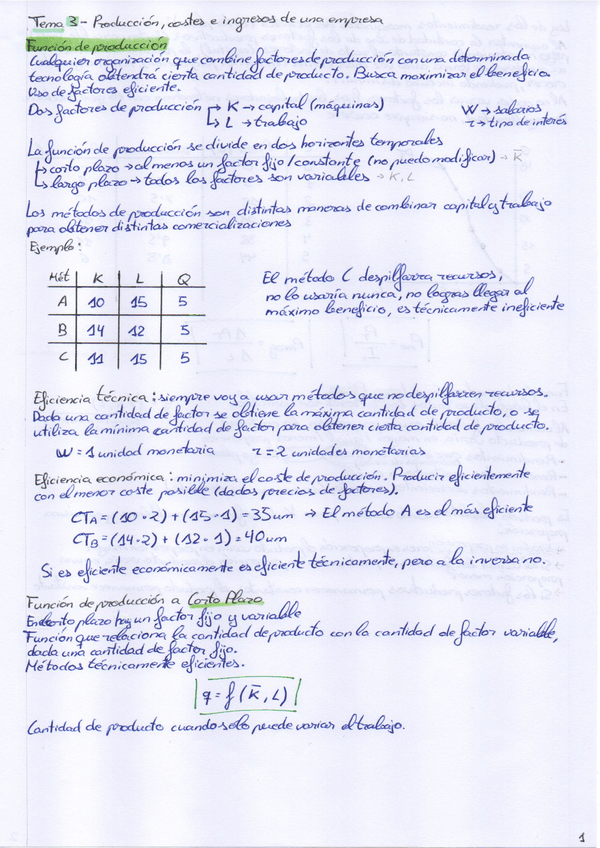 Tema 3 - Producción, costes e ingresos de una empresa
Función de producción
Cualquier organización que combine factores de producción con una determinada
tecnología obtendrá cierta cantidad de producto. Busca maximizar el beneficio
Uso de factores eficiente.
Dos factores de producción → K → capital (máquinas) W → salarios
↳ L → trabajo r → tipo de interés
La función de producción se divide en dos horizontes temporales
↳ corto plazo → al menos un factor fijo/constante (no puedo modificar) → K̅
↳ largo plazo → todos los factores son variables → K, L
Los métodos de producción son distintas maneras de combinar capital y trabajo
para obtener distintas comercializaciones
Ejemplo:
Mét K L Q
A 10 15 5
B 14 12 5
C 11 15 5
El método C despilfarra recursos,
no lo usaría nunca, no logras llegar al
máximo beneficio, es técnicamente ineficiente
Eficiencia técnica: siempre voy a usar métodos que no despilfarren recursos.
Dada una cantidad de factor se obtiene la máxima cantidad de producto, o se
utiliza la mínima cantidad de factor para obtener cierta cantidad de producto.
W = 1 unidad monetaria r = 2 unidades monetarias
Eficiencia económica: minimiza el coste de producción. Producir eficientemente
con el menor coste posible (dados precios de factores).
CTA = (10·2) + (15·1) = 35um → El método A es el más eficiente
CTB = (14·2) + (12·1) = 40um
Si es eficiente económicamente es eficiente técnicamente, pero a la inversa no.
Función de producción a Corto Plazo
En corto plazo hay un factor fijo y variable
Función que relaciona la cantidad de producto con la cantidad de factor variable,
dada una cantidad de factor fijo.
Métodos técnicamente eficientes.
q = f (K̅, L)
Cantidad de producto cuando solo puede variar el trabajo.
1